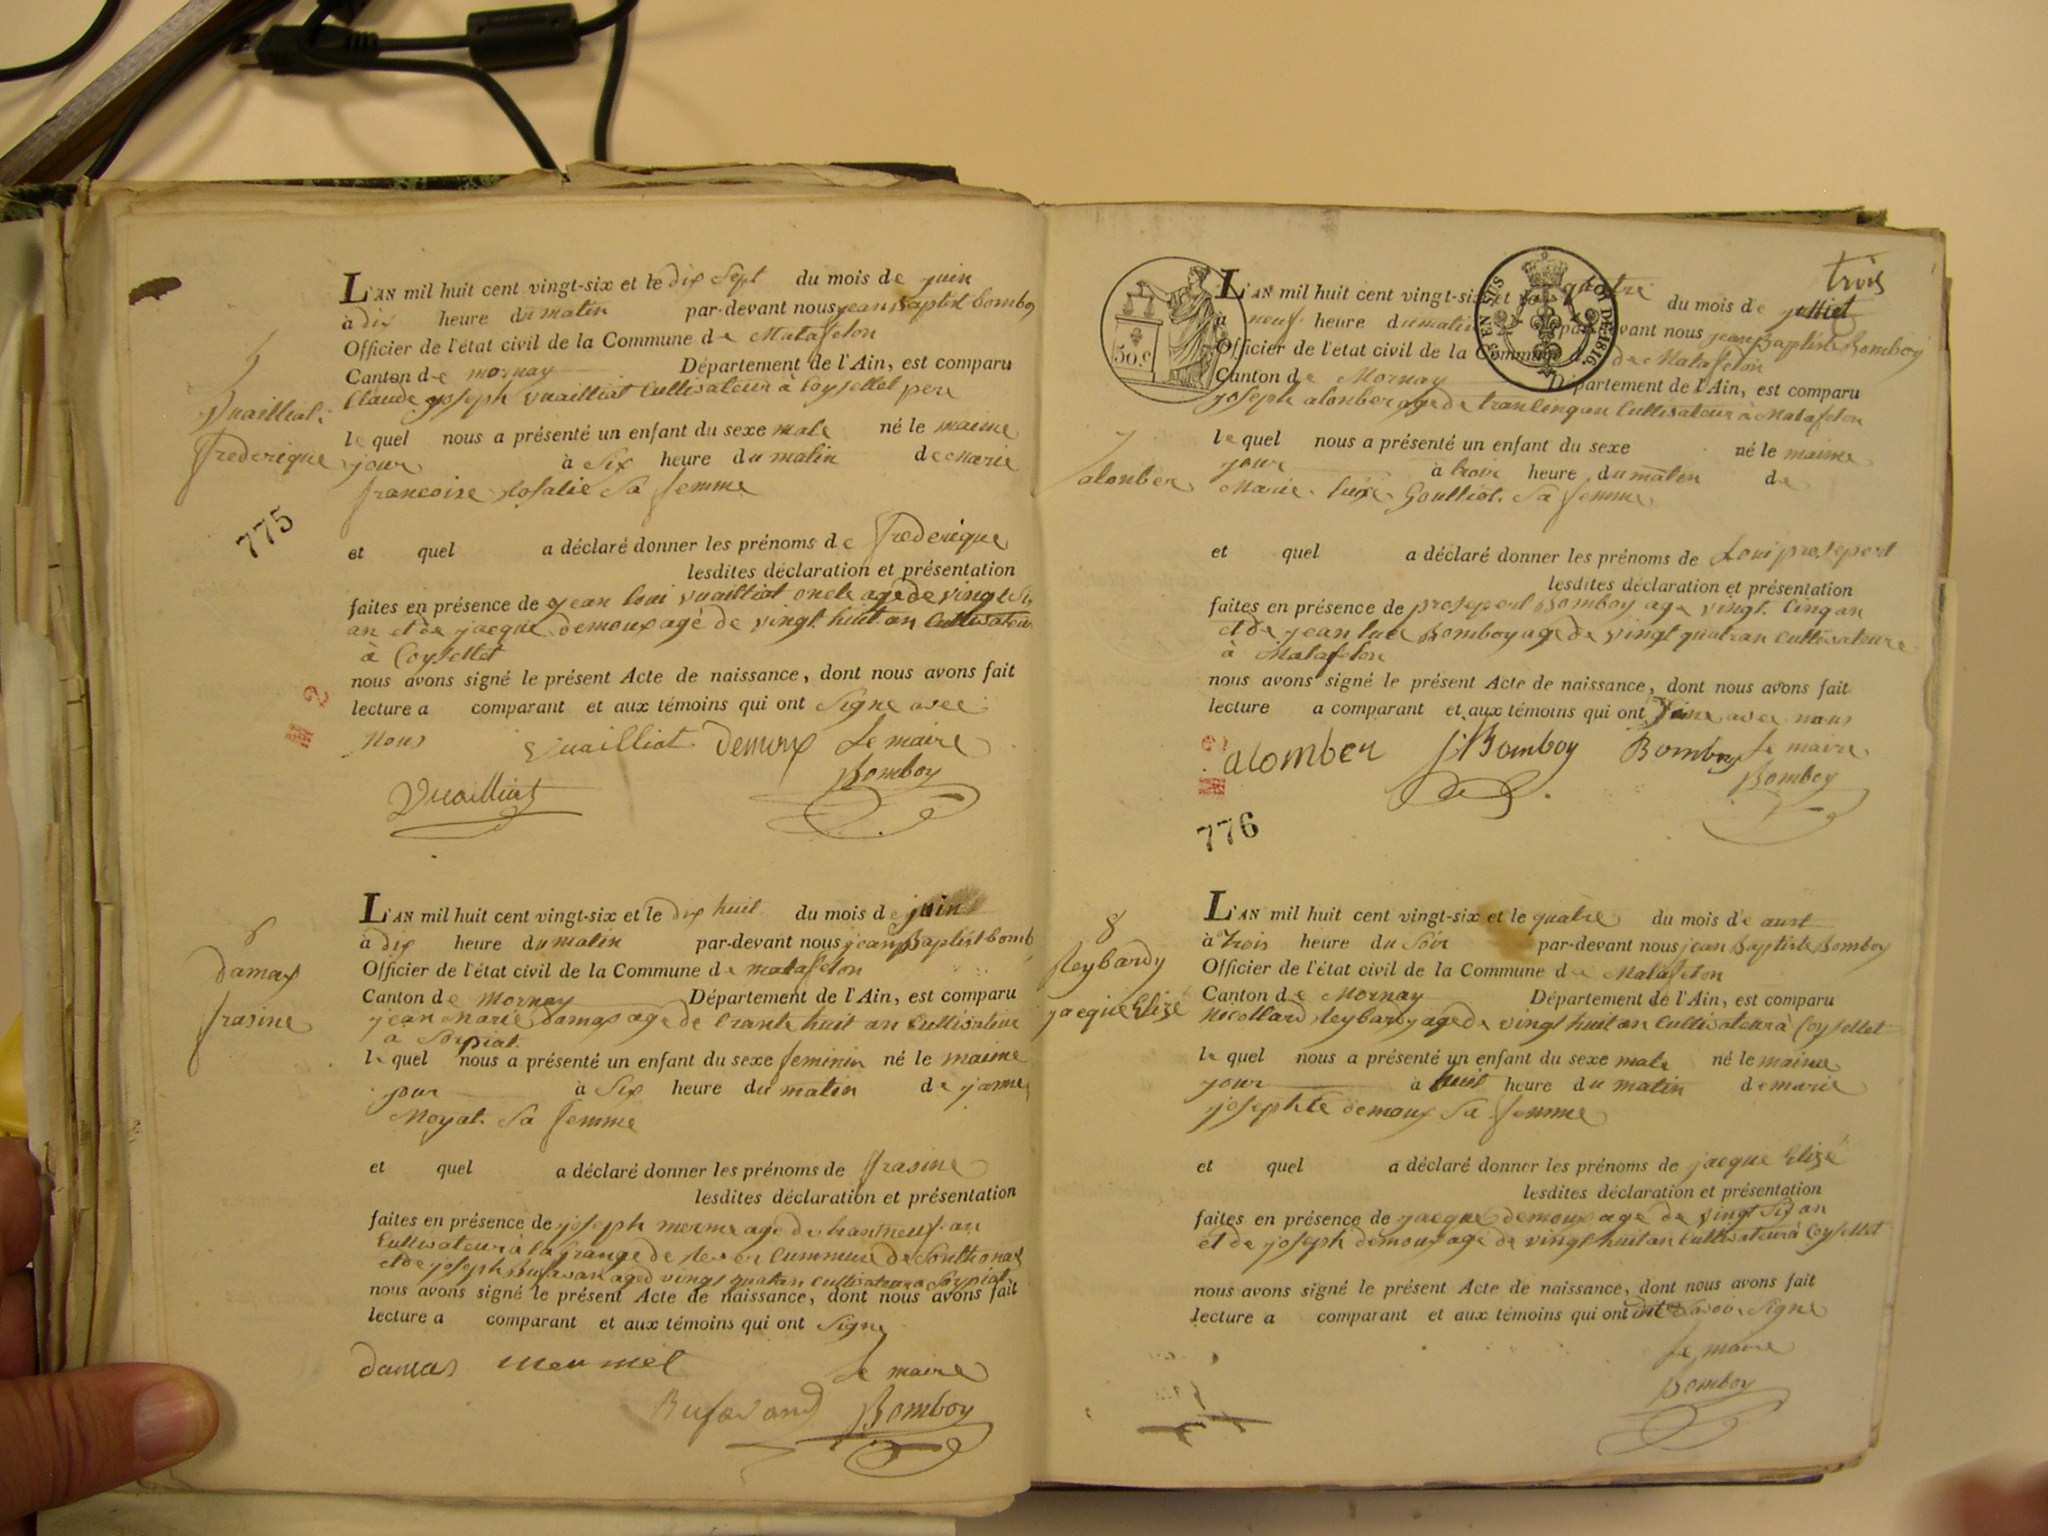 5
Vuailliat
Frederique
775
2
L'AN mil huit cent vingt-six et le dix sept du mois de juin
à dix heure du matin par-devant nous jean Baptist bomboy
Officier de l'état civil de la Commune de Matafelon
Canton de mornay Département de l'Ain, est comparu
Claude joseph vuailliat Cultivateur à Coysellet pere
le quel nous a présenté un enfant du sexe male né le maime
jour à six heure du matin de Marie
francoise Rosalie sa femme
et quel a déclaré donner les prénoms de frederique
lesdites déclaration et présentation
faites en présence de jean loui vuailliat oncle agé de vingt si
an et de jacque demoux agé de vingt huit an Cultivateur
à Coysellet
nous avons signé le présent Acte de naissance, dont nous avons fait
lecture a comparant et aux témoins qui ont signe avec
nous vuailliat Demoux Le maire
Vuailliat Bomboy
6
damas
frasine
L'AN mil huit cent vingt-six et le dix huit du mois de juin
à dix heure du matin par-devant nous jean Baptist bomb
Officier de l'état civil de la Commune de matafelon
Canton de Mornay Département de l'Ain, est comparu
jean Marie damas age de trante huit an Cultivateur
a Sorpiat
le quel nous a présenté un enfant du sexe feminin né le maime
jour à six heure du matin de janne
Moyat sa femme
et quel a déclaré donner les prénoms de frasine
lesdites déclaration et présentation
faites en présence de joseph merme age de trantneuf an
Cultivateur à la grange de Commune de
et de joseph Bufavan aged vingt quatan Cultivateur a Sorpiat
nous avons signé le présent Acte de naissance, dont nous avons fait
lecture a comparant et aux témoins qui ont signe
damas mermet Le maire
Bufavand Bomboy
trois
50 c
EN SUS LOI DE 1816.
7
alonber
L'AN mil huit cent vingt-six et le quatre du mois de julliet
à neuf heure du matin par-devant nous jean Baptiste Bomboy
Officier de l'état civil de la Commune de Matafelon
Canton de Mornay Département de l'Ain, est comparu
joseph alonber age de trancinq an Cultivateur à Matafelon
le quel nous a présenté un enfant du sexe né le maime
jour à troix heure du maten de
Marie Goulliot sa femme
et quel a déclaré donner les prénoms de Loui prosepert
lesdites déclaration et présentation
faites en présence de prosepert Bomboy age vingt cinq an
et de jean luce Bomboy agé de vingt quatran Cultivateure
à Matafelon
nous avons signé le présent Acte de naissance, dont nous avons fait
lecture a comparant et aux témoins qui ont sine avec nous
alomber J.Bomboy Bomboy Le maire
Bomboy
776
8
Reybardy
jacque Elizé
L'AN mil huit cent vingt-six et le quatre du mois de aust
à trois heure du soir par-devant nous jean Baptiste Bomboy
Officier de l'état civil de la Commune de Matafelon
Canton de Mornay Département de l'Ain, est comparu
Nicollard Reybardy age de vingt huit an Cultivateur à Coysellet
le quel nous a présenté un enfant du sexe male né le maime
jour à huit heure du matin de marie
josephte demoux sa femme
et quel a déclaré donner les prénoms de jacque Elizé
lesdites déclaration et présentation
faites en présence de jacque demoux age de vingt six an
et de joseph demoux agé de vingt huit an Cultivateur à Coysellet
nous avons signé le présent Acte de naissance, dont nous avons fait
lecture a comparant et aux témoins qui ont savoir signe
Le maire
Bomboy